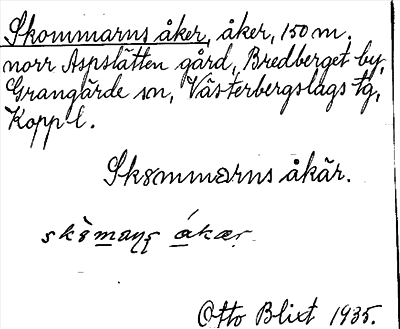 Skommarns åker, åker, 150 m.
norr Aspslätten gård, Bredberget by,
Grangärde sn, Västerbergslags tg,
Kopp l.
Skommarns åkär.
Otto Blixt 1935.